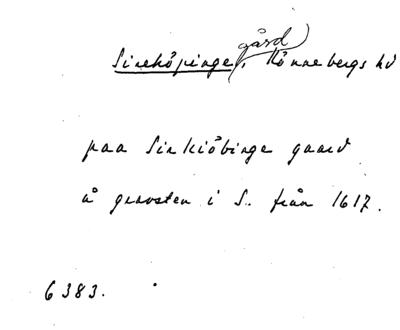 Sireköpinge gård, Rönnebergs hd
paa Sirkiöbinge gaard
å gravsten i S. från 1617.
6383.